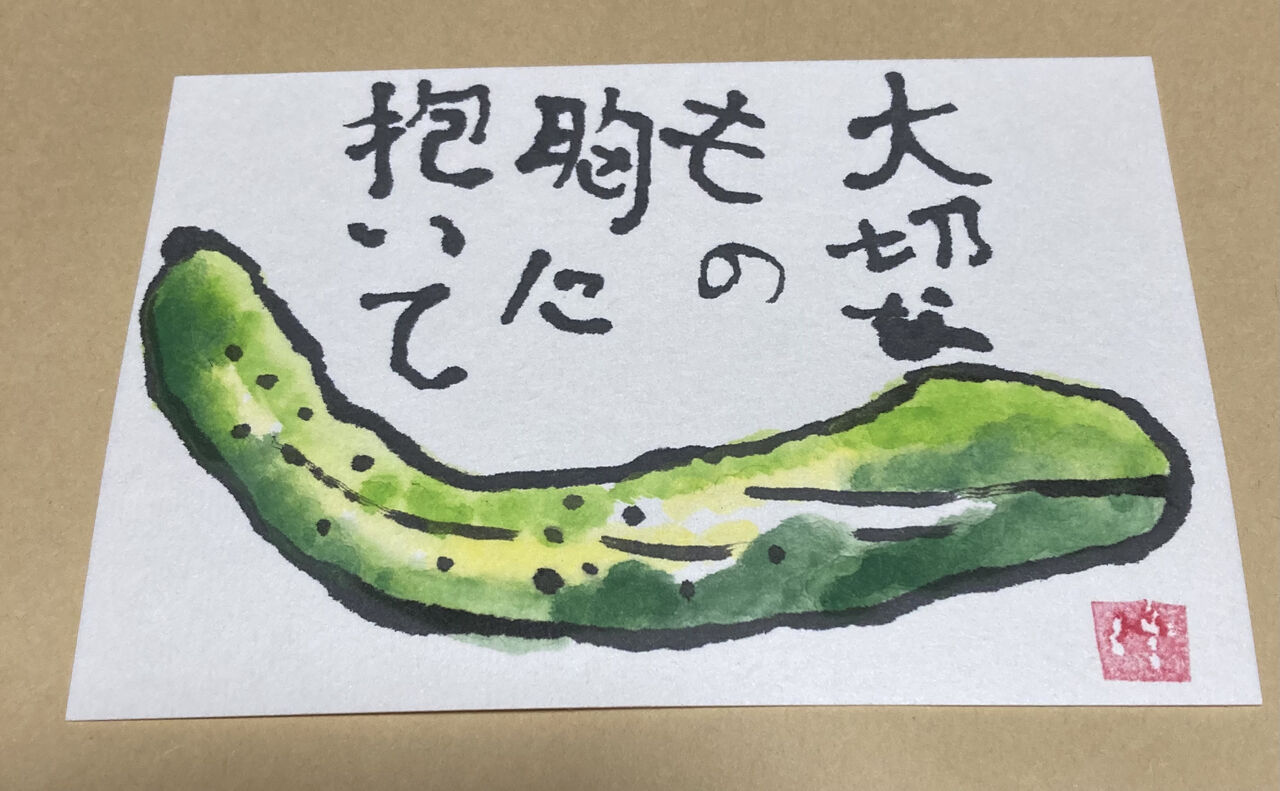 大切な
もの
胸に
抱いて